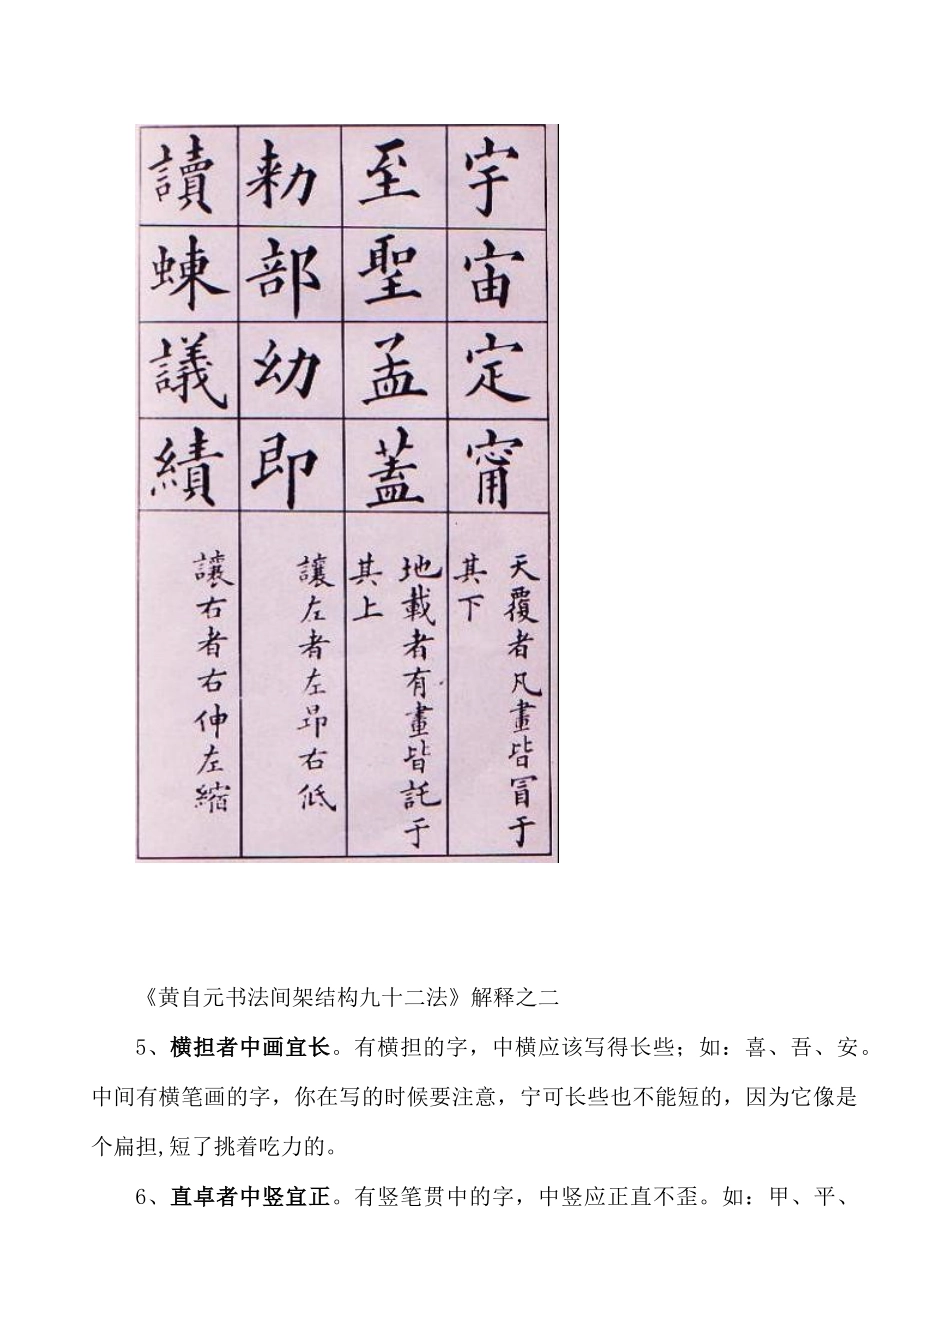 宇
宙
定
甯
天覆者凡畫皆冒于
其下
至
聖
孟
蓋
地載者有畫皆託于
其上
勑
部
幼
即
讓左者左昂右低
讀
蝀
議
績
讓右者右伸左縮
《黄自元书法间架结构九十二法》解释之二
5、横担者中画宜长。有横担的字，中横应该写得长些；如：喜、吾、安。
中间有横笔画的字，你在写的时候要注意，宁可长些也不能短的，因为它像是
个扁担,短了挑着吃力的。
6、直卓者中竖宜正。有竖笔贯中的字，中竖应正直不歪。如：甲、平、